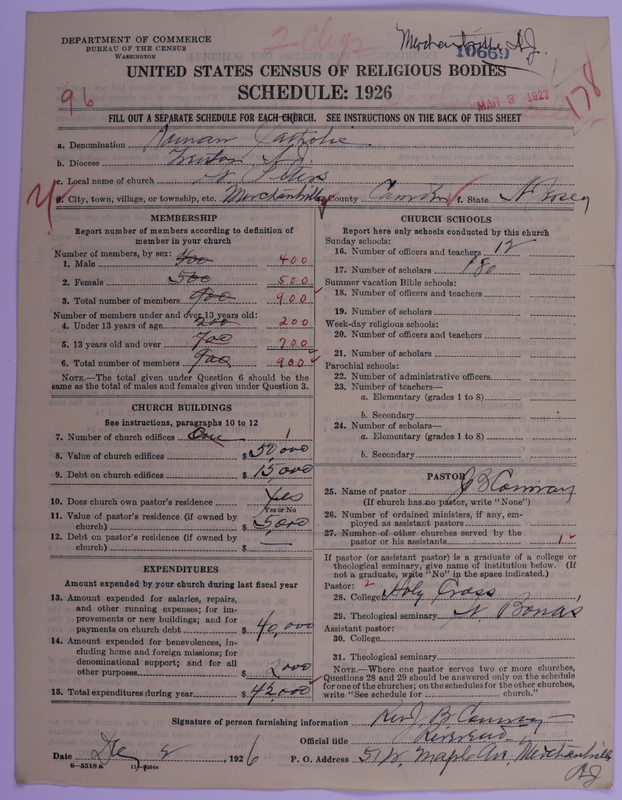 DEPARTMENT OF COMMERCE
BUREAU OF THE CENSUS
WASHINGTON
2 Chgs
Merchantville, N.J.
10669
UNITED STATES CENSUS OF RELIGIOUS BODIES
SCHEDULE: 1926
96
MAR 3 1927
178
FILL OUT A SEPARATE SCHEDULE FOR EACH CHURCH. SEE INSTRUCTIONS ON THE BACK OF THIS SHEET
a. Denomination Roman Catholic
b. Diocese Trenton, N.J.
c. Local name of church St Peters
d. City, town, village, or township, etc. Merchantville County Camden f. State N Jersey
MEMBERSHIP
Report number of members according to definition of
member in your church
Number of members, by sex:
1. Male 400 400
2. Female 500 500
3. Total number of members 900 900
Number of members under and over 13 years old:
4. Under 13 years of age 200 200
5. 13 years old and over 700 700
6. Total number of members 900 900
NOTE.—The total given under Question 6 should be the
same as the total of males and females given under Question 3.
CHURCH BUILDINGS
See instructions, paragraphs 10 to 12
7. Number of church edifices One 1
8. Value of church edifices $50,000
9. Debt on church edifices $15,000
10. Does church own pastor's residence Yes
Yes or No
11. Value of pastor's residence (if owned by
church) $5000
12. Debt on pastor's residence (if owned by
church) $ —
EXPENDITURES
Amount expended by your church during last fiscal year
13. Amount expended for salaries, repairs,
and other running expenses; for im-
provements or new buildings; and for
payments on church debt $40,000
14. Amount expended for benevolences, in-
cluding home and foreign missions; for
denominational support; and for all
other purposes $2000
15. Total expenditures during year $42,000
CHURCH SCHOOLS
Report here only schools conducted by this church
Sunday schools:
16. Number of officers and teachers 12
17. Number of scholars 180
Summer vacation Bible schools:
18. Number of officers and teachers
19. Number of scholars
Week-day religious schools:
20. Number of officers and teachers
21. Number of scholars
Parochial schools:
22. Number of administrative officers
23. Number of teachers—
a. Elementary (grades 1 to 8)
b. Secondary
24. Number of scholars—
a. Elementary (grades 1 to 8)
b. Secondary
PASTOR
25. Name of pastor J B Conway
(If church has no pastor, write "None")
26. Number of ordained ministers, if any, em-
ployed as assistant pastors
27. Number of other churches served by the
pastor or his assistants 1
If pastor (or assistant pastor) is a graduate of a college or
theological seminary, give name of institution below. (If
not a graduate, write "No" in the space indicated.)
Pastor: 2
28. College Holy Cross
29. Theological seminary St. Bonas
Assistant pastor:
30. College
31. Theological seminary
NOTE.—Where one pastor serves two or more churches,
Questions 28 and 29 should be answered only on the schedule
for one of the churches; on the schedules for the other churches,
write "See schedule for church."
Signature of person furnishing information Rev J. B. Conway
Official title Reverend
Date 2, 1926 P. O. Address 51 W. Maple Av. Merchantville
NJ
8—5518a